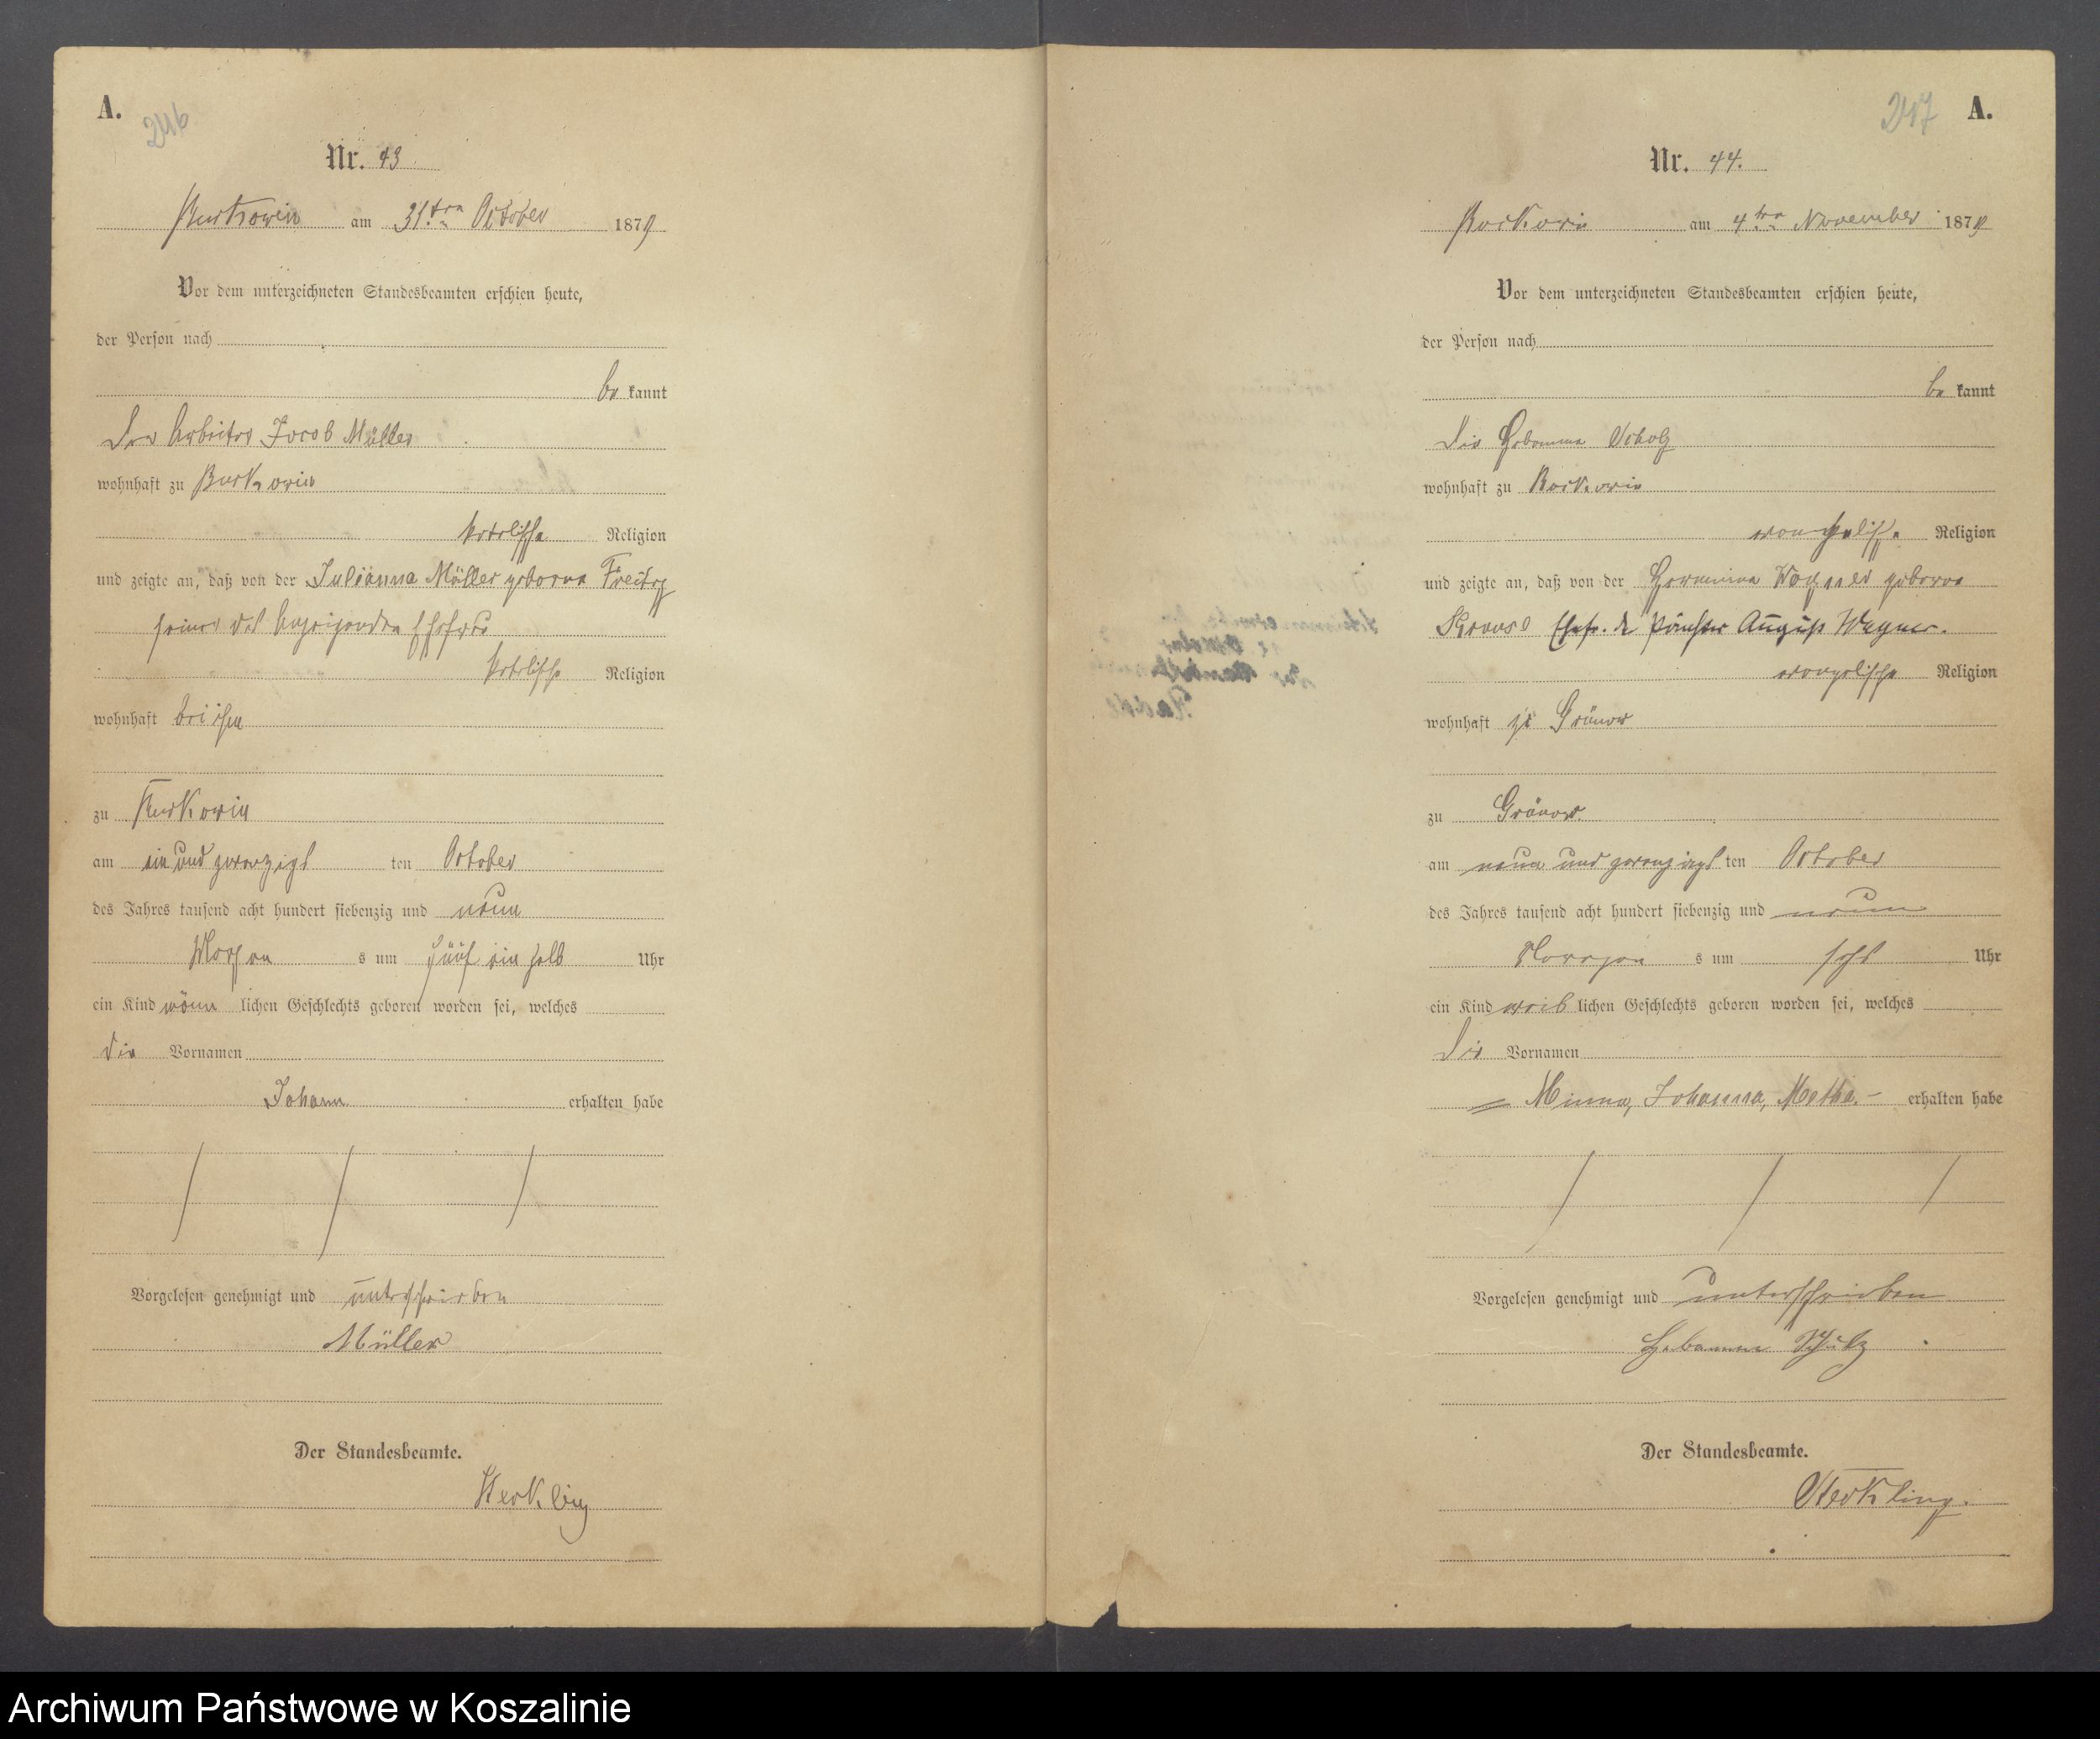 A.
246
Nr. 43
am 31ten October 1879
Vor dem unterzeichneten Standesbeamten erschien heute,
der Person nach
be kannt
Der Arbeiter Jacob Müller
wohnhaft zu
katolische Religion
und zeigte an, daß von der Julianna Müller geborne Freitag
seiner des Anzeigenden Ehefrau
katolische Religion
wohnhaft bei ihm
zu
am ein und zwanzigs ten October
des Jahres tausend acht hundert siebenzig und neun
Morgen s um fünf ein halb Uhr
ein Kind männ lichen Geschlechts geboren worden sei, welches
die Vornamen
Johann erhalten habe
Vorgelesen genehmigt und unterschrieben
Müller
Der Standesbeamte.
Sterkling
247
A.
Nr. 44.
am 4ten November 1879
Vor dem unterzeichneten Standesbeamten erschien heute,
der Person nach
be kannt
Die Hebamme
wohnhaft zu
evangelische Religion
und zeigte an, daß von der Hermine Wagner geborne
Krause Ehefr. des August Wagner.
evangelische Religion
wohnhaft zu Grünow
zu Grünow.
am neun und zwanzigs ten October
des Jahres tausend acht hundert siebenzig und neun
Morgen s um Uhr
ein Kind weib lichen Geschlechts geboren worden sei, welches
die Vornamen
= Minna, Johanna, Metha. – erhalten habe
Vorgelesen genehmigt und unterschrieben
Hebamme
Der Standesbeamte.
Sterkling.
Archiwum Państwowe w Koszalinie